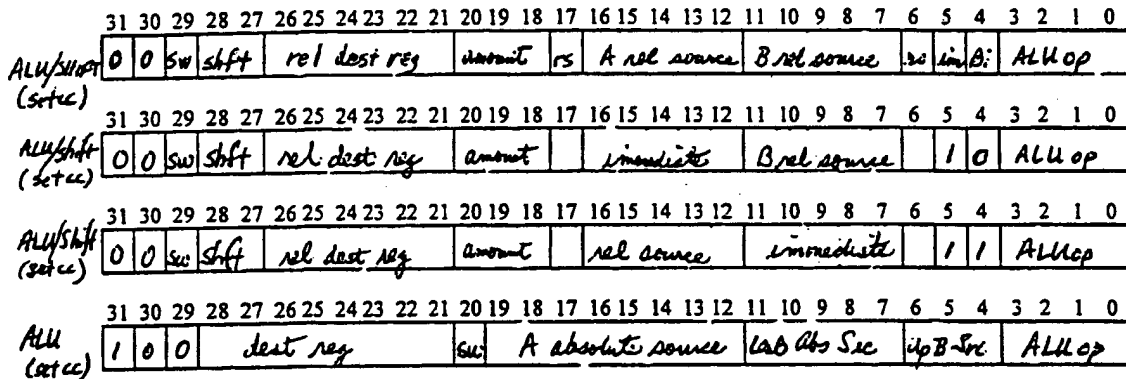 31 30 29 28 27 26 25 24 23 22 21 20 19 18 17 16 15 14 13 12 11 10 9 8 7 6 5 4 3 2 1 0
ALU/Shift 0 0 sw shft rel dest reg amount rs A rel source B rel source im Bi ALU op
(setcc)
31 30 29 28 27 26 25 24 23 22 21 20 19 18 17 16 15 14 13 12 11 10 9 8 7 6 5 4 3 2 1 0
ALU/shift 0 0 sw Shft rel dest reg amount immediate B rel source 1 0 ALU op
(setcc)
31 30 29 28 27 26 25 24 23 22 21 20 19 18 17 16 15 14 13 12 11 10 9 8 7 6 5 4 3 2 1 0
ALU/Shift 0 0 sw Shft rel dest reg amount rel source immediate 1 1 ALUop
(setcc)
31 30 29 28 27 26 25 24 23 22 21 20 19 18 17 16 15 14 13 12 11 10 9 8 7 6 5 4 3 2 1 0
ALU 1 0 0 dest reg sw A absolute source Abs Src B-Src ALU op
(setcc)